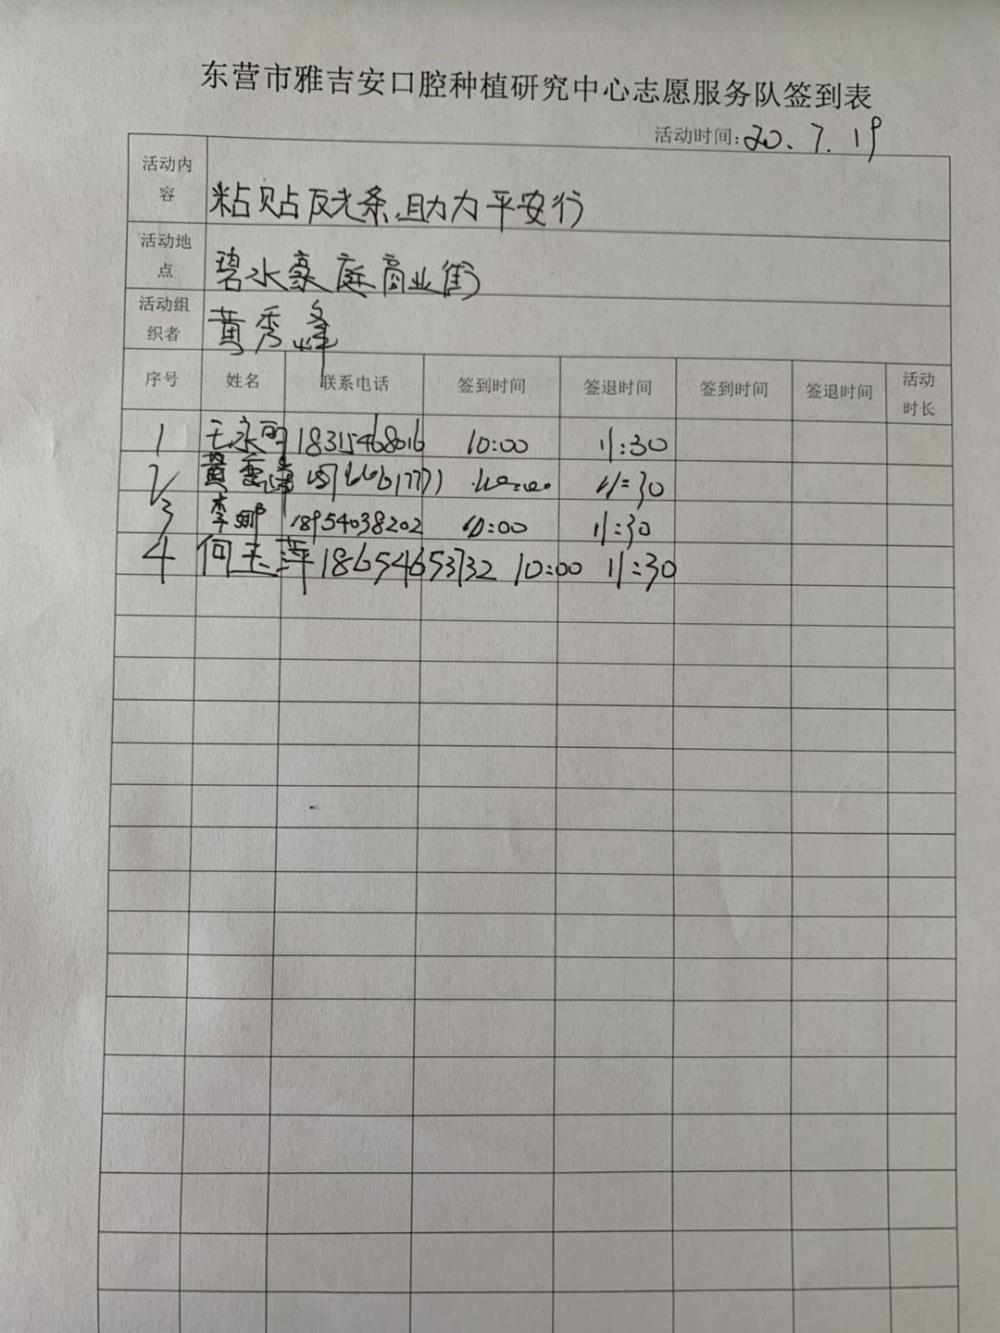 东营市雅吉安口腔种植研究中心志愿服务队签到表
活动时间:20.7.19
活动内容 粘贴反光条,助力平安行
活动地点 碧水豪庭商业街
活动组织者 黄秀峰
序号 姓名 联系电话 签到时间 签退时间 签到时间 签退时间 活动时长
1 王永丽 18315468016 10:00 11:30
2 黄秀峰 11:30
3 李娜 18954038202 10:00 11:30
4 何玉萍 18654653732 10:00 11:30